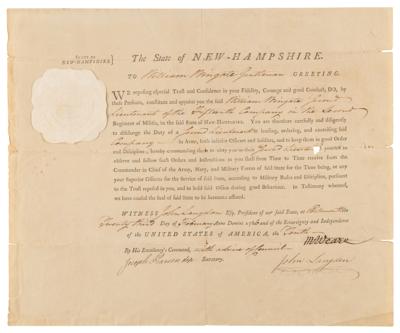 STATE OF
NEW-HAMPSHIRE.
The State of NEW-HAMPSHIRE.
TO William Wingate Gentleman GREETING.
WE reposing especial Trust and Confidence in your Fidelity, Courage and good Conduct, DO, by
these Presents, constitute and appoint you the said William Wingate second
Lieutenant of the Company in the Second
Regiment of Militia, in the said State of NEW-HAMPSHIRE. You are therefore carefully and diligently
to discharge the Duty of a second Lieutenant in leading, ordering, and exercising said
Company in Arms, both inferior Officers and Soldiers, and to keep them in good Order
and Discipline, hereby commanding them to obey you as their
observe and follow such Orders and Instructions as you shall from Time to Time receive from the
Commander in Chief of the Army, Navy, and Military Forces of said State for the Time being, or any
your Superior Officers for the Service of said State, according to Military Rules and Discipline, pursuant
to the Trust reposed in you, and to hold said Office during good Behaviour. In Testimony whereof,
we have caused the Seal of said State to be hereunto affixed.
WITNESS John Langdon Esq. President of our said State, at
Day of February Anno Domini and of the Sovereignty and Independence
of the UNITED STATES of AMERICA, the Tenth
By His Excellency's Command, with advice of Council MWeare
Joseph Pearson Secretary. John Langdon